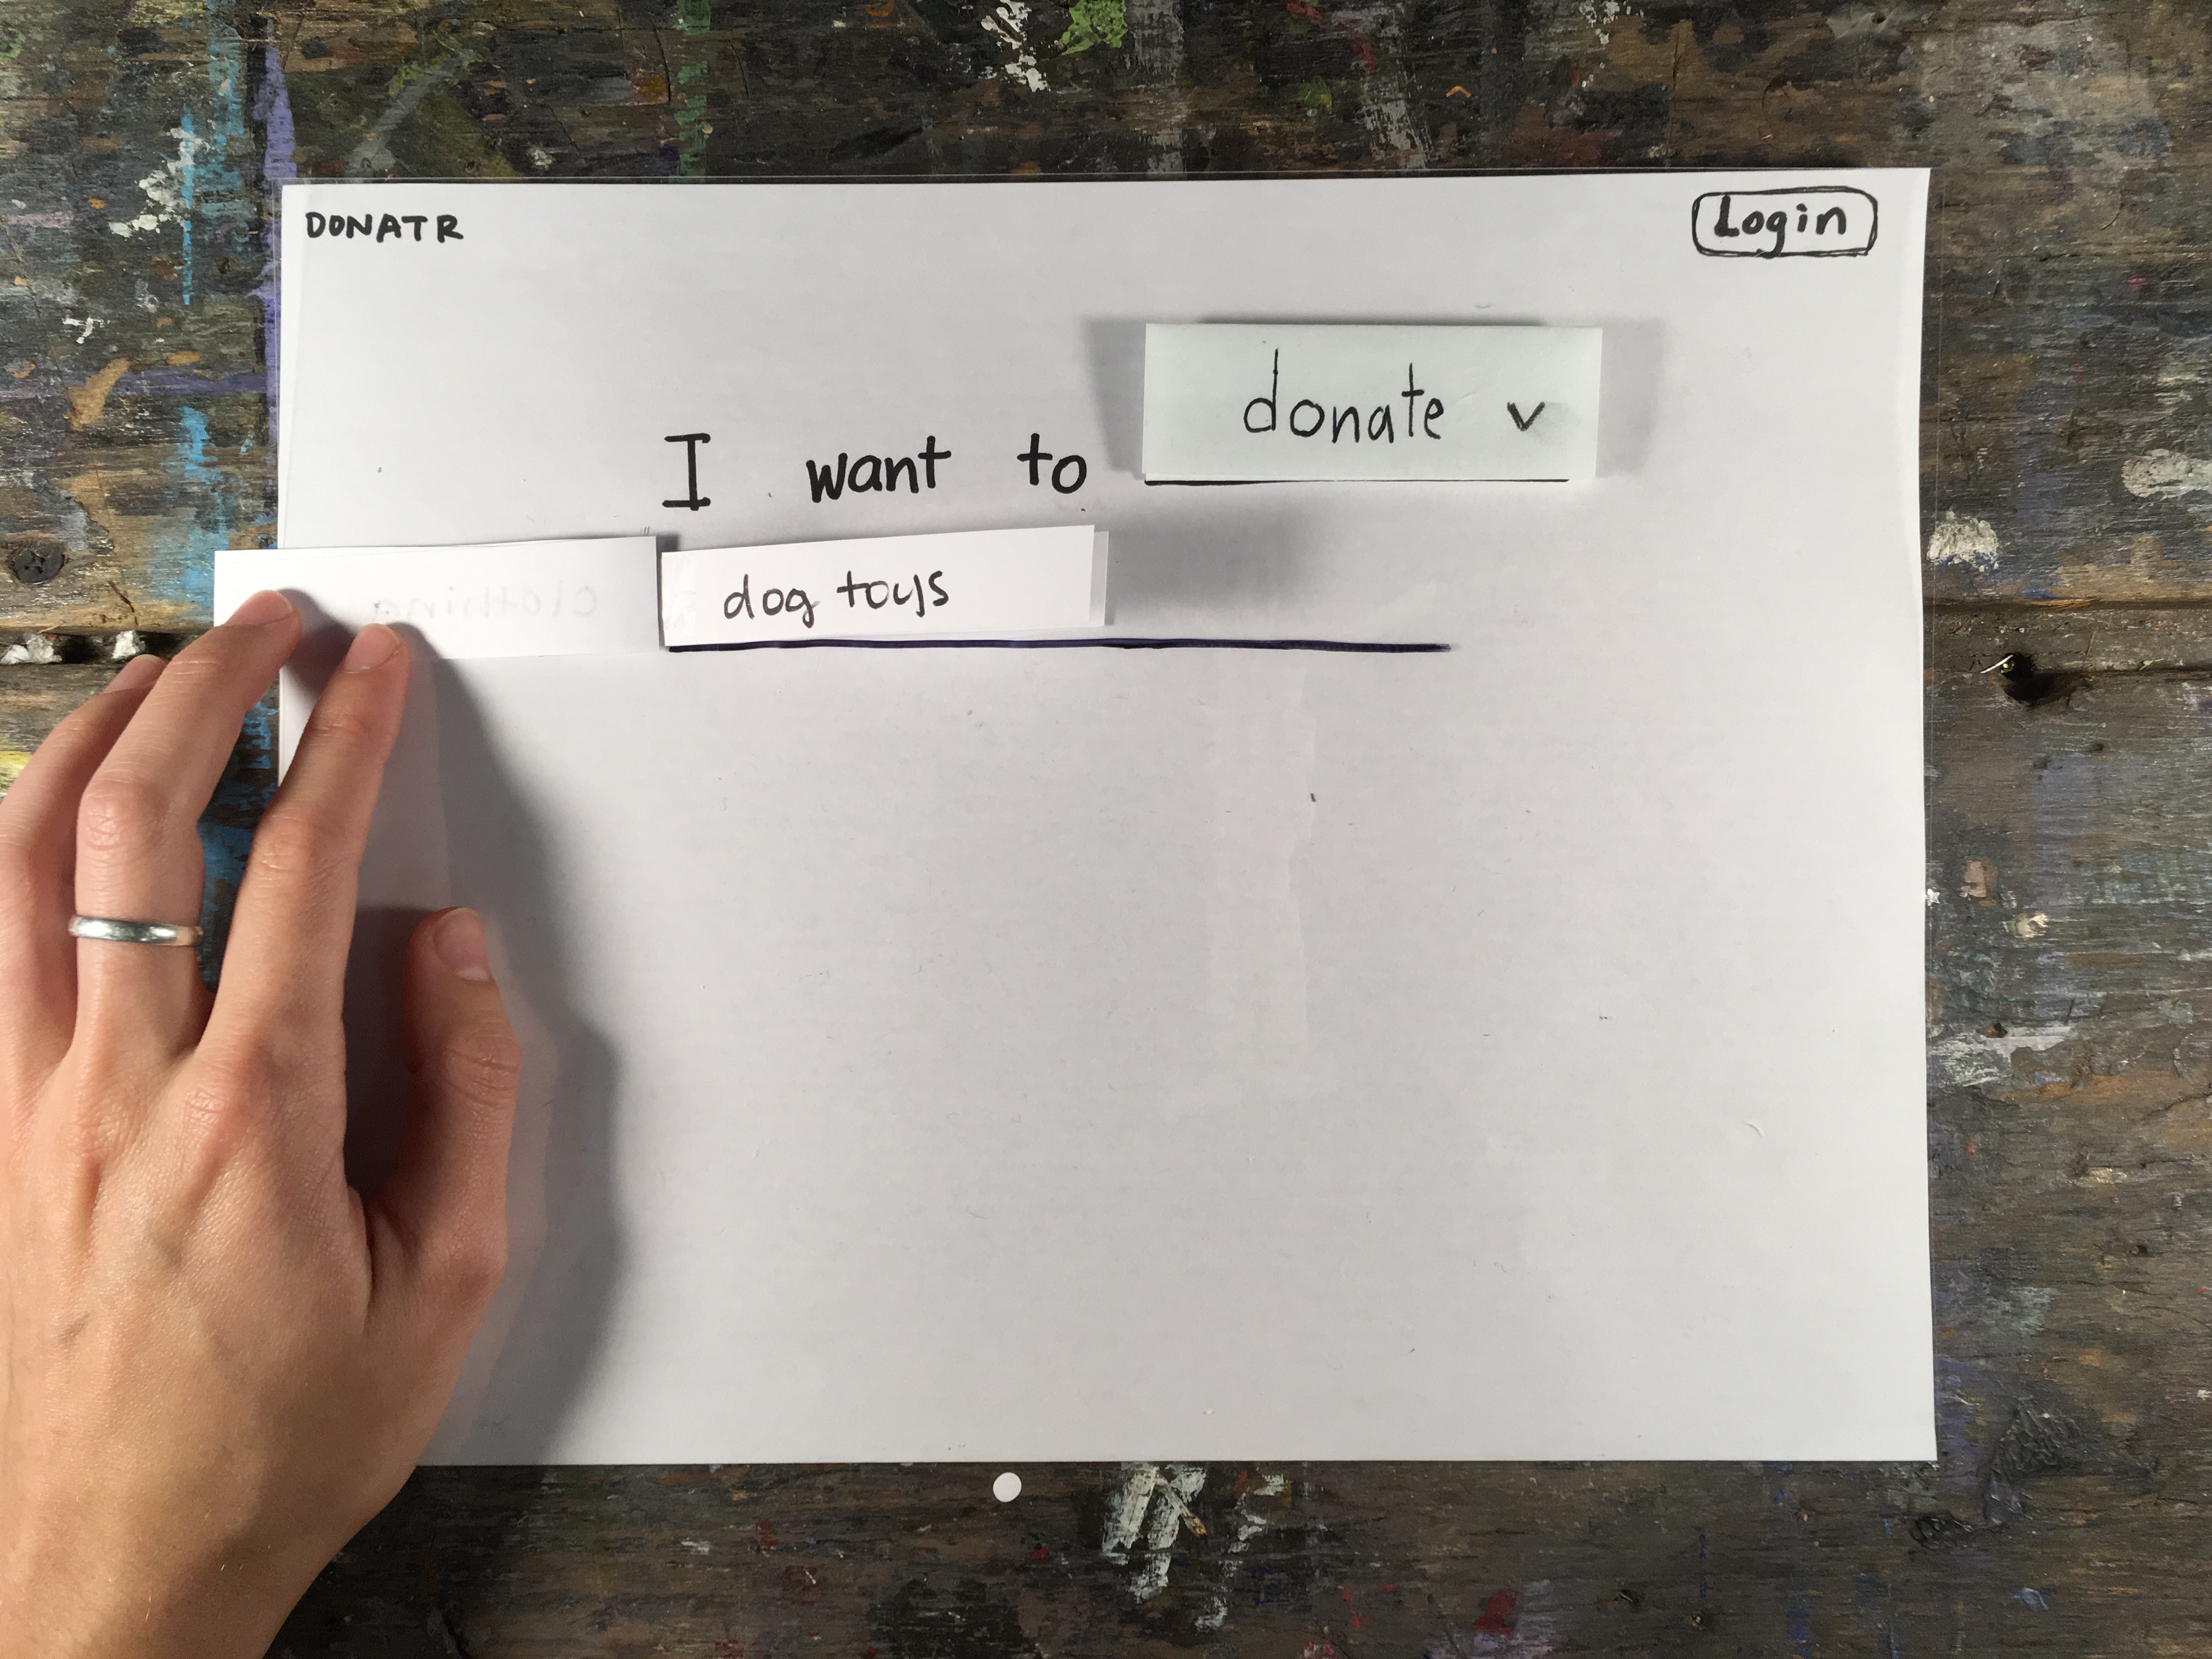 DONATR
Login
I want to donate v
clothing
dog toys